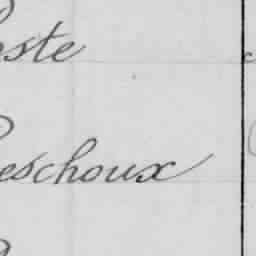 este
eschoux